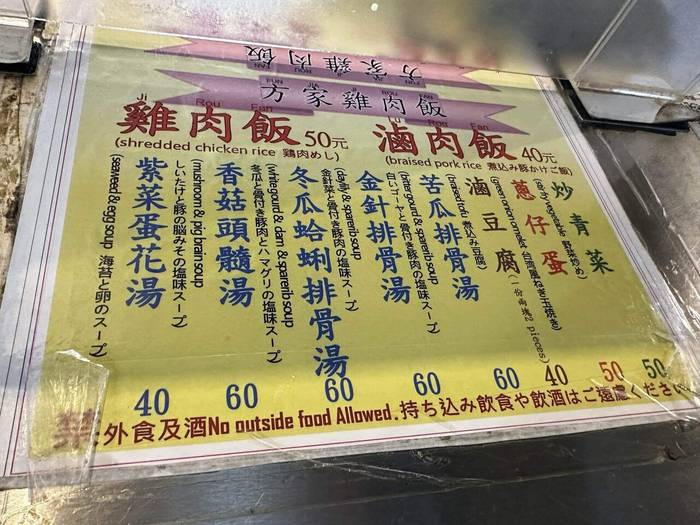 方家雞肉飯
Ji Rou Fan
雞肉飯 50元
(shredded chicken rice 鶏肉めし)
Rou Fan
滷肉飯 40元
(braised pork rice 煮込み豚かけご飯)
炒青菜
野菜炒め)
50
蔥仔蛋
台湾風ねぎ玉焼き)
50
滷豆腐
(一份兩塊2 pieces)
40
(braised tofu 煮込み豆腐)
苦瓜排骨湯
60
白いゴーヤと骨付き豚肉の塩味スープ)
金針排骨湯
60
(daylily & sparerib soup
金針菜と骨付き豚肉の塩味スープ)
冬瓜蛤蜊排骨湯
60
(white gourd & clam & sparerib soup
冬瓜と骨付き豚肉とハマグリの塩味スープ)
香菇頭髓湯
60
(mushroom & pig brain soup
しいたけと豚の脳みその塩味スープ)
紫菜蛋花湯
40
(seaweed & egg soup 海苔と卵のスープ)
禁外食及酒No outside food Allowed.持ち込み飲食や飲酒はご遠慮ください